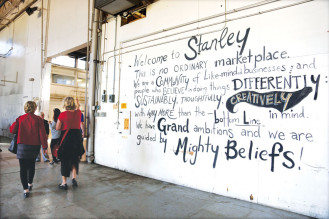 Welcome to Stanley
This is no ORDINARY marketplace.
We are a COMMUNITY of Like-mind businesses and
people who BELIEVE in doing things DIFFERENTLY
SUSTAINABLY, THOUGHTFULLY, CREATIVELY
with WAY MORE than the bottom Line in mind.
We have Grand ambitions and we are
guided by Mighty Beliefs!